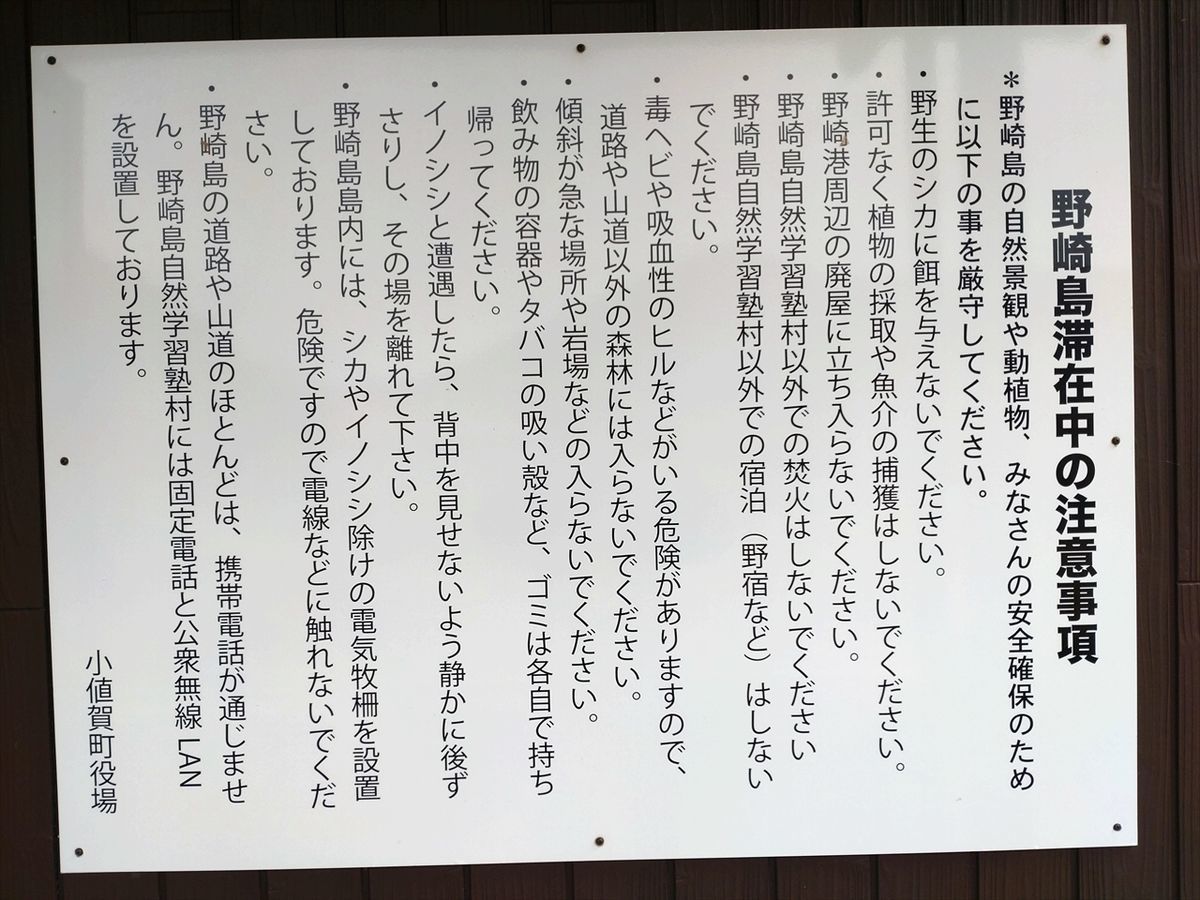 野崎島滞在中の注意事項
＊野崎島の自然景観や動植物、みなさんの安全確保のため
に以下の事を厳守してください。
・野生のシカに餌を与えないでください。
・許可なく植物の採取や魚介の捕獲はしないでください。
・野崎港周辺の廃屋に立ち入らないでください。
・野崎島自然学習塾村以外での焚火はしないでください
・野崎島自然学習塾村以外での宿泊（野宿など）はしない
でください。
・毒ヘビや吸血性のヒルなどがいる危険がありますので、
道路や山道以外の森林には入らないでください。
・傾斜が急な場所や岩場などの入らないでください。
・飲み物の容器やタバコの吸い殻など、ゴミは各自で持ち
帰ってください。
・イノシシと遭遇したら、背中を見せないよう静かに後ず
さりし、その場を離れて下さい。
・野崎島島内には、シカやイノシシ除けの電気牧柵を設置
しております。危険ですので電線などに触れないでくだ
さい。
・野崎島の道路や山道のほとんどは、携帯電話が通じませ
ん。野崎島自然学習塾村には固定電話と公衆無線LAN
を設置しております。
小値賀町役場